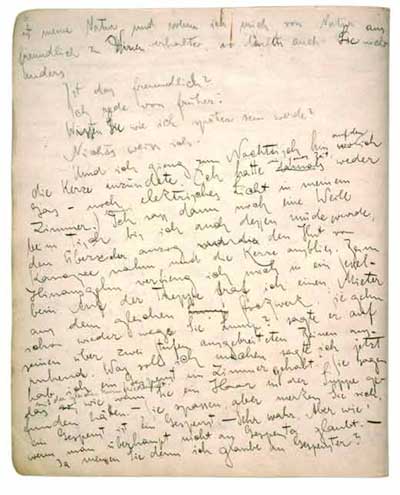 ist meine Natur und wenn ich mich von Natur aus
freundlich zu Ihnen verhalte so dürfen auch Sie nicht
anders
Ist das freundlich?
Ich rede von früher.
Wissen Sie wie ich später sein werde?
Nichts weiss ich.
Und ich gieng zum Nachttisch hin auf dem ich
die Kerze anzündete. Ich hatte in jener Zeit damals weder
Gas – noch elektrisches Licht in meinem
Zimmer. Ich sass dann noch eine Weile
beim Tisch bis ich auch dessen müde wurde,
den Überzieher anzog den Hut vom
Kanapee nahm und die Kerze ausblies. Beim
Hinausgehn verfieng ich mich in ein Sessel-
bein. Auf der Treppe traf ich einen Mieter
aus dem gleichen Stockwerk. Sie gehn
schon wieder weg Sie Lump? sagte er auf
seinen über zwei Stufen ausgebreiteten Beinen aus-
ruhend. Was soll ich machen sagte ich jetzt
hab ich ein Gespenst im Zimmer gehabt. Sie sagen
das mit der gleichen Unzufriedenheit wie wenn Sie ein Haar in der Suppe ge-
funden hätten – Sie spassen, aber merken Sie sich,
ein Gespenst ist ein Gespenst – Sehr wahr. Aber wie
wenn man überhaupt nicht an Gespenster glaubt. –
Ja meinen Sie denn ich glaube an Gespenster?